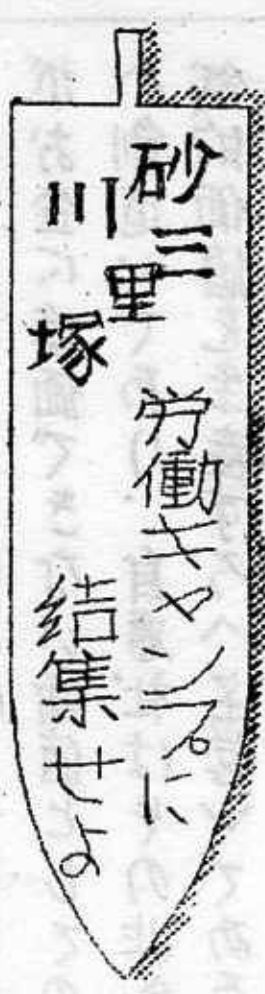 砂川
三里塚
労働キャンプに
結集せよ